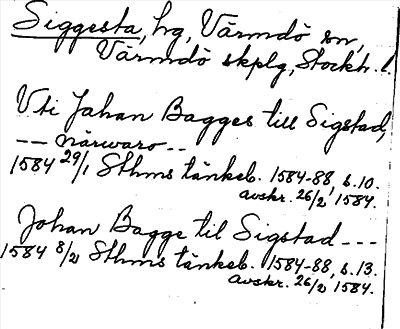 Siggesta, hg, Värmdö sn,
Värmdö skplg, Stockh. l.
Uti Jahan Bagges till Sigstad,
-- närwaro --
1584 29/1 Sthms tänkeb. 1584-88, s. 10.
avskr. 26/2 1584.
Johan Bagge til Sigstad ---
1584 8/2 Sthms tänkeb. 1584-88, s. 13.
avskr. 26/2 1584.